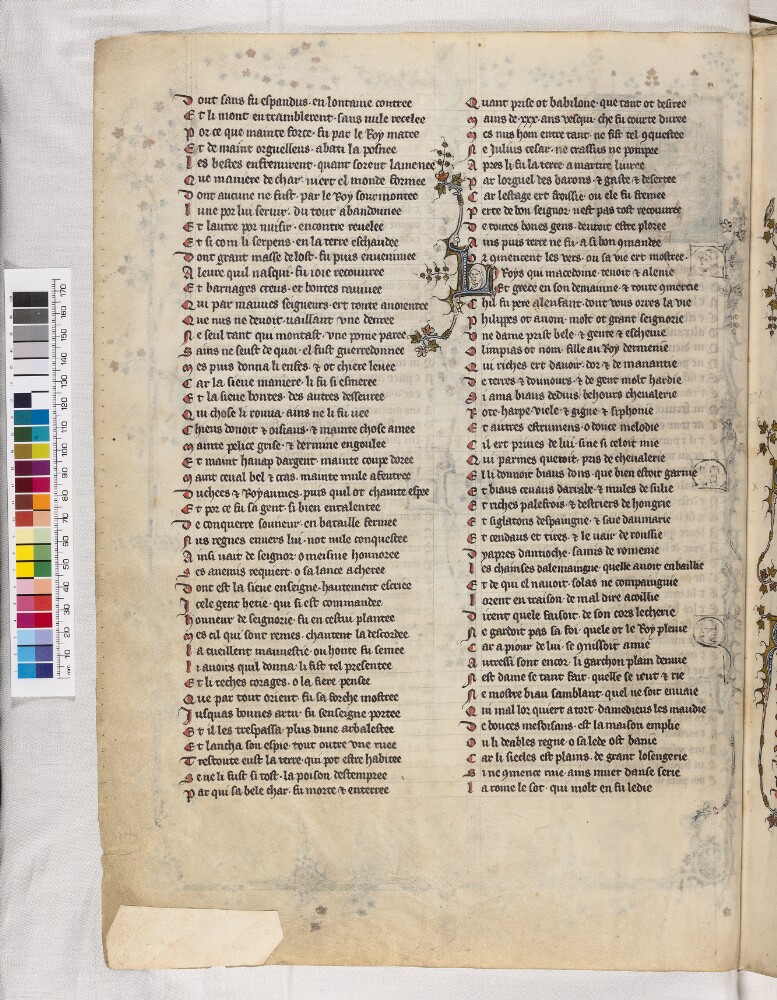 Dont sans fu espandus · en lontaine contree
Et li mont entramblerent · sans nule recelee
Por ce que mainte force · fu par le Roy matee
Et de maint orguelleus · abatu la posnee
Les bestes enfremirent · quant furent lamenee
Que maniere de char · niert el monde formee
Dont aucune ne fust · par le Roy sourmontee
Lune por lui servir · du tout abandonnee
Et lautre por nuisir · encontre revelee
Et si com li serpens · en la terre eschaudee
Dont grant masse de lost · fu puis envenimee
A leure quil nasqui · fu ioie recouvree
Et barnages creus · et bontes ravivee
Qui par mauves seigneurs · ert toute anoientee
Que nus ne devoit · vaillant une denree
Ne seul tant qui montast · une pome paree
Sains ne seust de quoi · el fust guerredonnee
Mes puis donna li enfes · & ot chiere levee
Car la sieue maniere · li fu si esmeree
Et la sieue bontes · des autres desseuree
Qui chose li rouva · ains ne li fu vee
Chiens donoit & oisiaus · & mainte chose amee
Mainte pelice grise · & dermine engoulee
Et maint hanap dargent · mainte coupe doree
Maint ceval bel & cras · mainte mule afeutree
Duchees & Royaumes · puis quil ot chainte espee
Et por ce fu sa gent · si bien entalentee
De conquerre souneur · en bataille fermee
Nus regnes envers lui · not nule conquestee
Ainsi vait de seignor · o meisnie honnoree
Ses avenis requiert · o sa lance aceree
Dont est la sieue enseigne · hautement escriee
Icele gent herie · qui si est commandee
Honneur de seignorie · fu en cestui plantee
Mes cil qui sont remes · chantent la descordee
La cueillent mauvestie · ou honte fu semee
Li avoirs quil donna · li fist tel presentee
Et li riches corages · o la fiere pensee
Que par tout orient · fu sa forche mostree
Jusquas bonnes artu · fu senseigne portee
Et il les trespassa · plus dune arbalestee
Et lancha son espie · tout outre une ruee
Trestoute eust la terre · qui pot estre habitee
Se ne li fust si tost · la poison destempree
Par qui sa bele char · fu morte & enterree
Quant prise ot babilone · que tant ot desiree
Mains de · xxx · ans vesqui · che fu courte duree
Mes nus hom entre tant · ne fist tel questee
Ne Julius cesar · ne crassus ne pompee
Apres li fu la terre · a martire livree
Par lorguel des barons · & gaste & desertee
Car lestage ert froissie · ou ele fu fremee
Perte de bon seignor · nest pas tost recouvree
De toutes bones gens · devroit estre ploree
Ains puis terre ne fu · a si bon qmandee
Or qmencent les vers · ou sa vie ert mostree ·
LI Roys qui macedoine tenoit & alenie
Et grece en son demainne · & toute qmenie
Chil fu pere alexandre · dont vous orres la vie
Philippes ot anom · molt ot grant seignorie
Une dame prist bele · & gente & eschevie
Olimpias ot nom · fille au Roy dermenie
Qui riches ert davoir · dor & de manantie
De terres & dounours · & de gent molt hardie
Si ama biaus deduis · behours chevalerie
Rote · harpe · viele · & gigue & siphonie
Et autres estrumens · o douce melodie
Cil ert privees de lui · sine si celoit mie
Qui par mes queroit · pris de chevalerie
El li donnoit biaus dons · que bien estoit garnie
Et biaus cevaus darrabe · & mules de sulie
Et riches palefrois · & destriers de hongrie
Et siglatons despaingne · & saie daumarie
Et cendaus et tires · & le vair de roussie
Dyapres dantioche · samis de romenie
Les chainses dalemaingne · quelle avoit en baillie
Et de qui el navoit · solas ne compaingnie
Lorent en traison · de mal dire acoillie
Dirent quele faisoit · de son cors lecherie
Ne gardoit pas sa foi · quele ot le Roy plevie
Car a piour de lui · se qnissoit amie
Autressi sont encor · li garchon plain denvie
Nest dame se tant fait · quelle se ieut & rie
Ne mostre biau samblant · quel ne soit envaie
Qui mal lor quiert a tort · damedieus les maudie
De bouces mesdisans · est la maison emplie
Ou li deables regne · o sa lede ost banie
Car li siecles est plains · de grant losengerie
Si ne qmence mie · ains muet danse serie
La rome le sot · qui molt en fu ledie